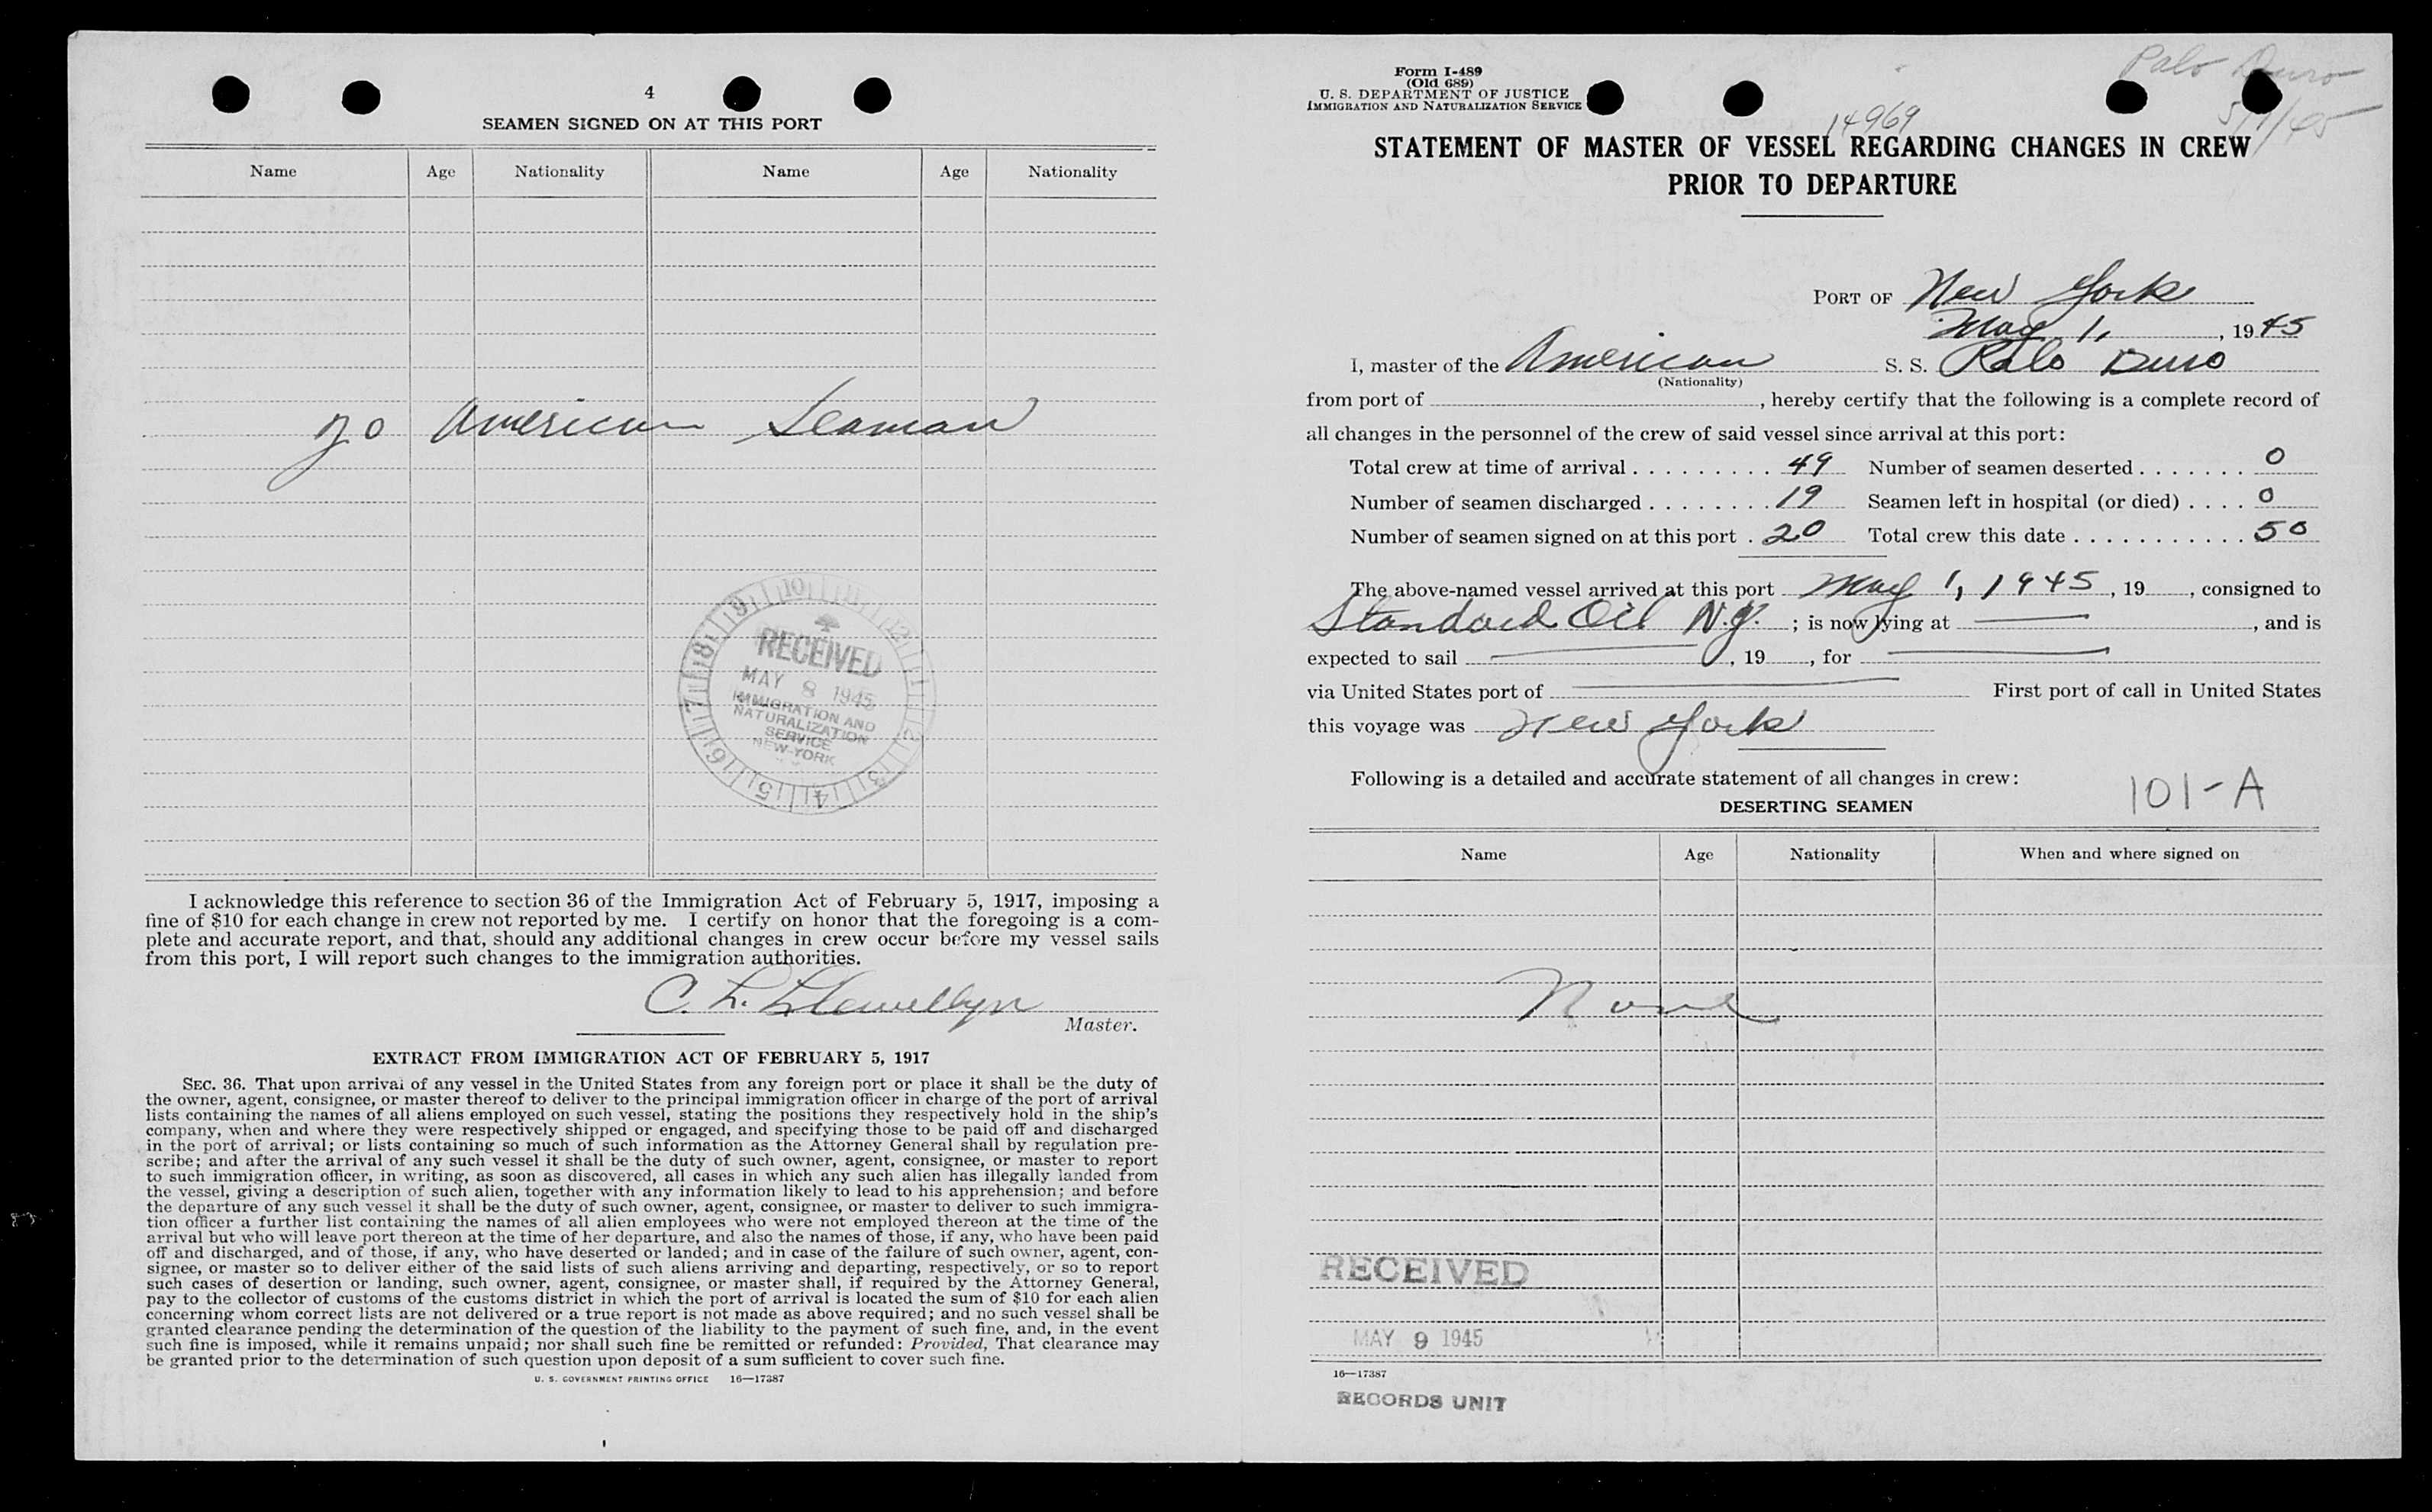 4
SEAMEN SIGNED ON AT THIS PORT
Name Age Nationality Name Age Nationality
20 American Seaman
10 11 12 1 2 3 4 5 6 7 8 9
RECEIVED
MAY 8 1945
IMMIGRATION AND
NATURALIZATION
SERVICE
NEW-YORK
I acknowledge this reference to section 36 of the Immigration Act of February 5, 1917, imposing a
fine of $10 for each change in crew not reported by me. I certify on honor that the foregoing is a com-
plete and accurate report, and that, should any additional changes in crew occur before my vessel sails
from this port, I will report such changes to the immigration authorities.
C. L. Llewellyn
Master.
EXTRACT FROM IMMIGRATION ACT OF FEBRUARY 5, 1917
SEC. 36. That upon arrival of any vessel in the United States from any foreign port or place it shall be the duty of
the owner, agent, consignee, or master thereof to deliver to the principal immigration officer in charge of the port of arrival
lists containing the names of all aliens employed on such vessel, stating the positions they respectively hold in the ship's
company, when and where they were respectively shipped or engaged, and specifying those to be paid off and discharged
in the port of arrival; or lists containing so much of such information as the Attorney General shall by regulation pre-
scribe; and after the arrival of any such vessel it shall be the duty of such owner, agent, consignee, or master to report
to such immigration officer, in writing, as soon as discovered, all cases in which any such alien has illegally landed from
the vessel, giving a description of such alien, together with any information likely to lead to his apprehension; and before
the departure of any such vessel it shall be the duty of such owner, agent, consignee, or master to deliver to such immigra-
tion officer a further list containing the names of all alien employees who were not employed thereon at the time of the
arrival but who will leave port thereon at the time of her departure, and also the names of those, if any, who have been paid
off and discharged, and of those, if any, who have deserted or landed; and in case of the failure of such owner, agent, con-
signee, or master so to deliver either of the said lists of such aliens arriving and departing, respectively, or so to report
such cases of desertion or landing, such owner, agent, consignee, or master shall, if required by the Attorney General,
pay to the collector of customs of the customs district in which the port of arrival is located the sum of $10 for each alien
concerning whom correct lists are not delivered or a true report is not made as above required; and no such vessel shall be
granted clearance pending the determination of the question of the liability to the payment of such fine, and, in the event
such fine is imposed, while it remains unpaid; nor shall such fine be remitted or refunded: Provided, That clearance may
be granted prior to the determination of such question upon deposit of a sum sufficient to cover such fine.
U. S. GOVERNMENT PRINTING OFFICE 16—17387
Form I-489
(Old 689)
U. S. DEPARTMENT OF JUSTICE
IMMIGRATION AND NATURALIZATION SERVICE
Palo Duro
5/1/45
14969
STATEMENT OF MASTER OF VESSEL REGARDING CHANGES IN CREW
PRIOR TO DEPARTURE
PORT OF New York
May 1, , 1945
I, master of the American S. S. Palo Duro
(Nationality)
from port of , hereby certify that the following is a complete record of
all changes in the personnel of the crew of said vessel since arrival at this port:
Total crew at time of arrival . . . . . . . . . 49 Number of seamen deserted . . . . . . . 0
Number of seamen discharged . . . . . . . . 19 Seamen left in hospital (or died) . . . . 0
Number of seamen signed on at this port . 20 Total crew this date . . . . . . . . . . . 50
The above-named vessel arrived at this port May 1, 1945, 19 , consigned to
Standard Oil N.J. ; is now lying at — , and is
expected to sail — , 19 , for —
via United States port of — First port of call in United States
this voyage was New York
Following is a detailed and accurate statement of all changes in crew:
101-A
DESERTING SEAMEN
Name Age Nationality When and where signed on
None
RECEIVED
MAY 9 1945
16—17387
RECORDS UNIT